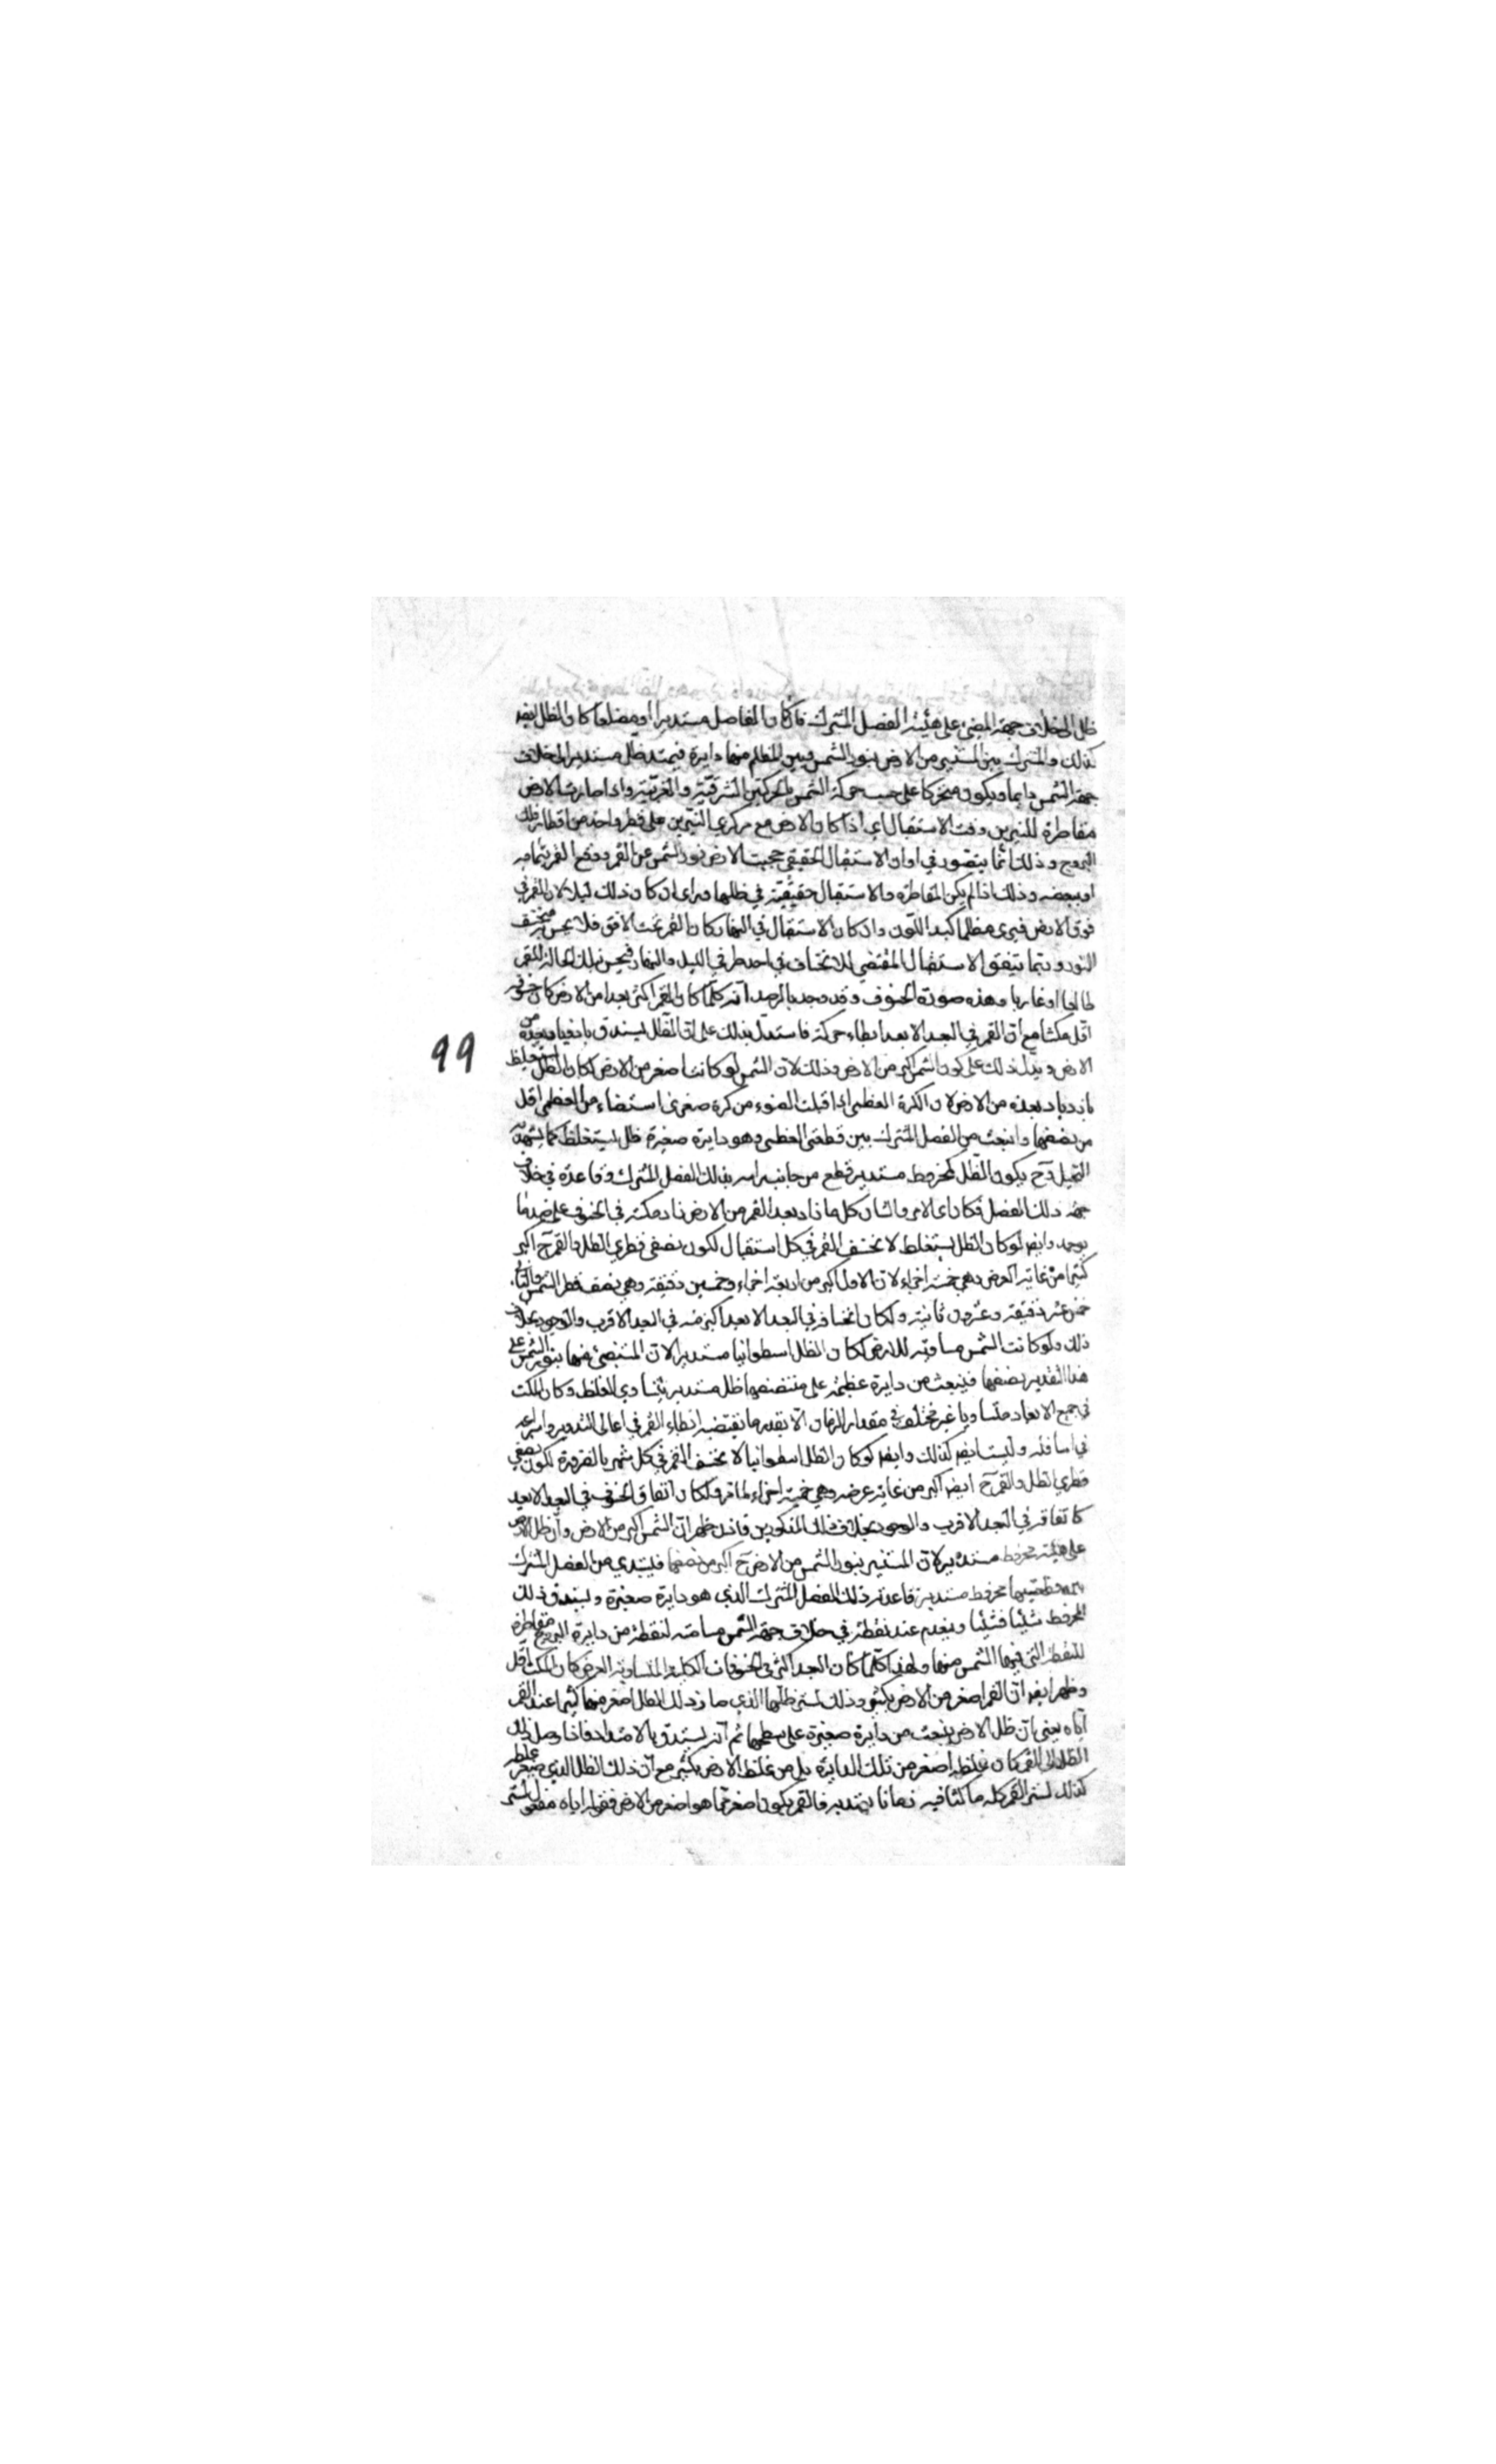 ظل الى خلاف جهة المضئ على هيئة الفصل المشترك فان كان الفاصل مستديرا او مضلعا كان الظل ايضا
كذلك والمشترك بين المستنير من الارض بنور الشمس وبين المظلم منها دايرة فيمتد ظل مستدير الى خلاف
جهة الشمس دايما ويكون متحركا على حسب حركة الشمس بالحركتين الشرقية والغربية واذا صارت الارض
مقاطرة للنيرين وقت الاستقبال اى اذا كان الارض مع مركزي النيرين على قطر واحد من اقطار فلك
البروج وذلك انما يتصور في اوان الاستقبال الحقيقي حجبت الارض نور الشمس عن القمر ووقع القمر بتمامه
او ببعضه وذلك اذا لم يكن المقاطرة والاستقبال حقيقية في ظلها فيرى ان كان ذلك ليلا لان القمر في
فوق الارض فيرى مظلما كمد اللون وان كان الاستقبال في النهار كان القمر تحت الافق فلا يحس منخسف
النور وربما يتفق الاستقبال المقتضي للانخساف في احد طرفي الليل والنهار فيحس بتلك الحالة للقمر
طالعا او غاربا وهذه صورة الخسوف وقد وجد بالرصد انه كلما كان القمر اكثر بعدا من الارض كان خسوفه
اقل مكثا مع ان القمر في البعد الابعد ابطاء حركة فاستدل بذلك على ان الظل يستدق بازدياد بعده من
99
الارض ويدل ذلك على كون الشمس اكبر من الارض وذلك لان الشمس لو كانت اصغر من الارض لكان الظل يستغلظ
بازدياد بعده من الارض لان الكرة العظمى اذا قبلت الضوء من كرة صغرى استضاء من العظمى اقل
من نصفها وانبعث من الفصل المشترك بين قطعتي العظمى وهو دايرة صغيرة ظل يستغلظ كما يشهد به
التخيل وح يكون الظل كمخروط مستدير قطع من جانب راسه بذلك الفصل المشترك وقاعدته في خلاف
جهة ذلك الفصل فكان الامر والشان كل ما زاد بعد القمر من الارض زاد مكثه في الخسوف على ضد ما
يوجد وايضا لو كان الظل يستغلظ لانخسف القمر في كل استقبال لكون نصفي قطري الظل والقمر ح اكبر
كثيرا من غاية العرض وهي خمسة اجزاء لان الاول اكبر من اربعة اجزاء وخمسين دقيقة وهي نصف قطر الشمس والثاني
خمس عشر دقيقة وعشرون ثانية ولكان انخسافه في البعد الابعد اكثر منه في البعد الاقرب والوجود بخلاف
ذلك ولو كانت الشمس مساوية للارض لكان الظل اسطوانيا مستديرا لان المستضئ منها بنور الشمس على
هذا التقدير نصفها فينبعث من دايرة عظيمة على منتصفها ظل مستدير يتساوي الغلظ وكان المكث
في جميع الابعاد متساويا غير مختلف في مقدار الزمان الا بقدر ما يقتضيه ابطاء القمر في اعالى التدوير واسراعه
في اسافله وليست ايضا كذلك وايضا لو كان الظل اسطوانيا لانخسف القمر في كل شهر بالضرورة لكون نصفي
قطري الظل والقمر ح ايضا اكبر من غاية عرضه وهي خمسة اجزاء لما مر ولكان اتفاق الخسوف في البعد الابعد
كاتفاقه في البعد الاقرب والوجود بخلاف ذلك المذكورين فاذن ظهر ان الشمس اكبر من الارض وان ظل الارض
على هيئة مخروط مستدير لان المستنير بنور الشمس من الارض ح اكبر من نصفها فيبتدي من الفصل المشترك
بين قطعتيها مخروط مستدير قاعدته ذلك الفصل المشترك الذي هو دايرة صغيرة ويستدق ذلك
المخروط شيئا فشيئا وينعدم عند نقطة في خلاف جهة الشمس مسامتة لنقطة من دايرة البروج مقاطرة
للنقطة التي فيها الشمس منها ولهذا كلما كان البعد اكثر في الخسوفات الكلية المتساوية العرض كان المكث اقل
وظهر ايضا ان القمر اصغر من الارض بكثير وذلك لستر ظلها الذي صار ذلك الظل اصغر منها كثيرا عند القمر
اياه يعني ان ظل الارض ينبعث من دايرة صغيرة على سطحها ثم انه يستدق بالامتداد فاذا وصل ذلك
الظل الى القمر كان غلظه اصغر من تلك الدايرة بل من غلظ الارض بكثير مع ان ذلك الظل الذي صغر غلظه
كذلك لستر القمر كله ماكثا فيه زمانا يعتد به فالقمر يكون اصغر مما هو اصغر من الارض فقوله اياه مفعول لستر